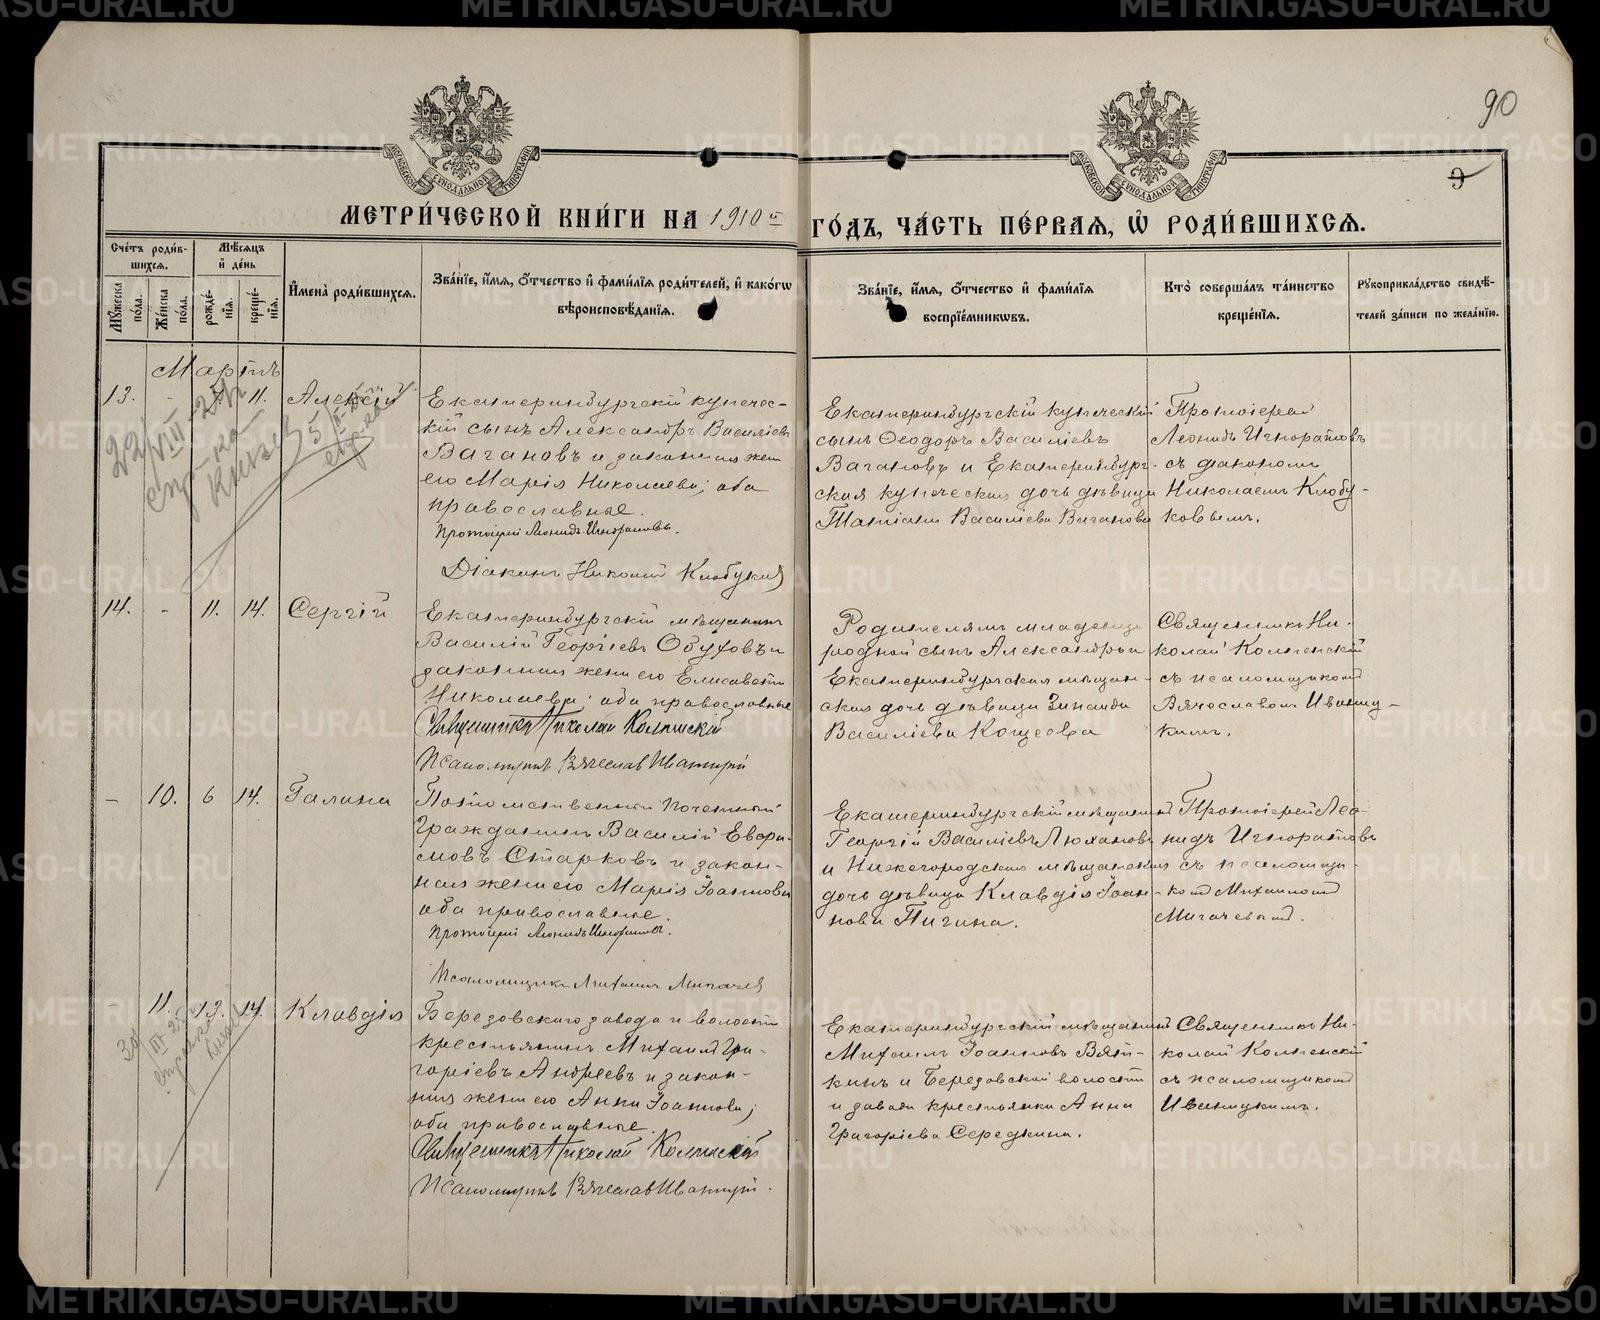 90
9
МЕТРИ́ЧЕСКОЙ КНИ́ГИ НА 1910 й ГО́ДЪ, ЧА́СТЬ ПЕ́РВАЯ, Ѽ РОДИ́ВШИХСѦ.
Сче́тъ роди́в-
шихсѧ.
Мѣ́сѧцъ
и҆ де́нь
Мꙋ́жеска по́ла.
Же́нска по́ла.
рожде́-
нїѧ.
креще́-
нїѧ.
И҆мена̀ роди́вшихсѧ.
Зва́нїе, и҆́мѧ, ѻ҆́тчество и҆ фами́лїѧ роди́телей, и҆ како́гѡ
вѣроисповѣ́данїѧ.
Зва́нїе, и҆́мѧ, ѻ҆́тчество и҆ фами́лїѧ
воспрїе́мникѡвъ.
Кто̀ соверша́лъ та́инство
креще́нїѧ.
Рꙋкоприкла́дство свидѣ́-
телей за́писи по жела́нїю.
Мартъ
13.
-
11.
Алексій
Екатеринбургскій купечес-
кій сынъ Александръ Василіевъ
Вагановъ и законная жена
его Марія Николаева; оба
православные.
Протоіерей Леонидъ Игноратовъ.
Діаконъ Николай Клобуковъ
Екатеринбургскій купеческій
сынъ Ѳеодоръ Василіевъ
Вагановъ и Екатеринбург-
ская купеческая дочь дѣвица
Татіана Василіева Ваганова
Протоіерей
Леонидъ Игноратовъ
съ діакономъ
Николаемъ Клобу-
ковымъ.
14.
-
11.
14.
Сергій
Екатеринбургскій мѣщанинъ
Василій Георгіевъ Обуховъ и
законная жена его Елисавета
Николаева; оба православные
Священникъ Николай Колпенскій
Псаломщикъ Вячеславъ Иваницкій
Родителямъ младенца
родной сынъ Александръ и
Екатеринбургская мѣщан-
ская дочь дѣвица Зинаида
Василіева Кощеева
Священникъ Ни-
колай Колпенскій
съ псаломщикомъ
Вячеславомъ Иваниц-
кимъ.
-
10.
6
14.
Галина
Потомственный почетный
гражданинъ Василій Евфи-
мовъ Старковъ и закон-
ная жена его Марія Іоаннова
оба православные.
Протоіерей Леонидъ Игноратовъ.
Псаломщикъ Михаилъ Мигачевъ
Екатеринбургскій мѣщанинъ
Георгій Василіевъ Люхановъ
и Нижегородская мѣщанская
дочь дѣвица Клавдія Іоан-
нова Пигина.
Протоіерей Лео-
нидъ Игноратовъ
съ псаломщи-
комъ Михаиломъ
Мигачевымъ.
-
11.
13.
14.
Клавдія
Березовскаго завода и волости
крестьянинъ Михаилъ Гри-
горіевъ Андреевъ и закон-
ная жена его Анна Іоаннова;
оба православные.
Священникъ Николай Колпенскій
Псаломщикъ Вячеславъ Иваницкій.
Екатеринбургскій мѣщанинъ
Михаилъ Іоанновъ Вят-
кинъ и Березовской волости
и завода крестьянка Анна
Григоріева Середкина.
Священникъ Ни-
колай Колпенскій
съ псаломщикомъ
Иваницкимъ.
METRIKI.GASO-URAL.RU